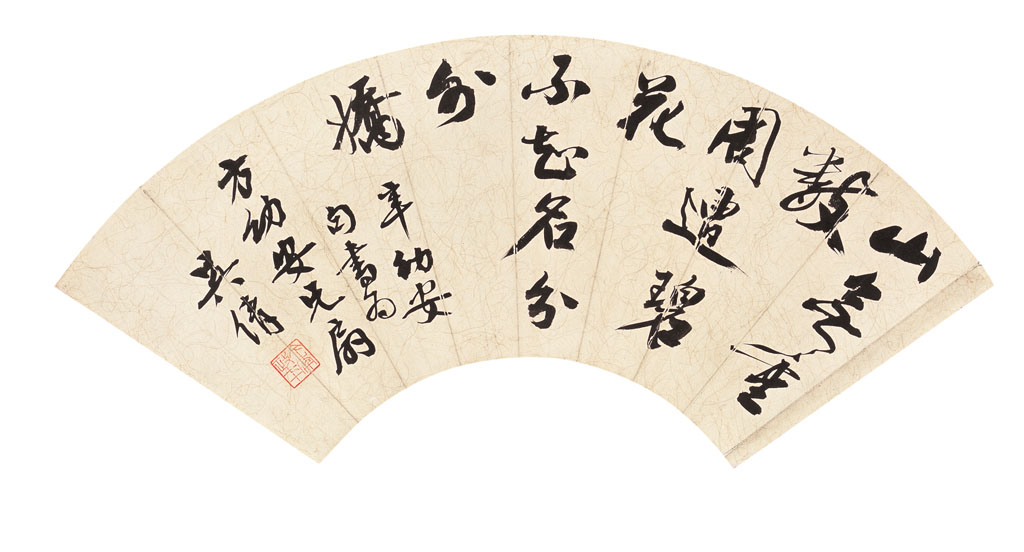 山無重
數
周遭碧
花
不知名分
外
嬌
辛幼安
句書為
方幼兄扇
吳倩